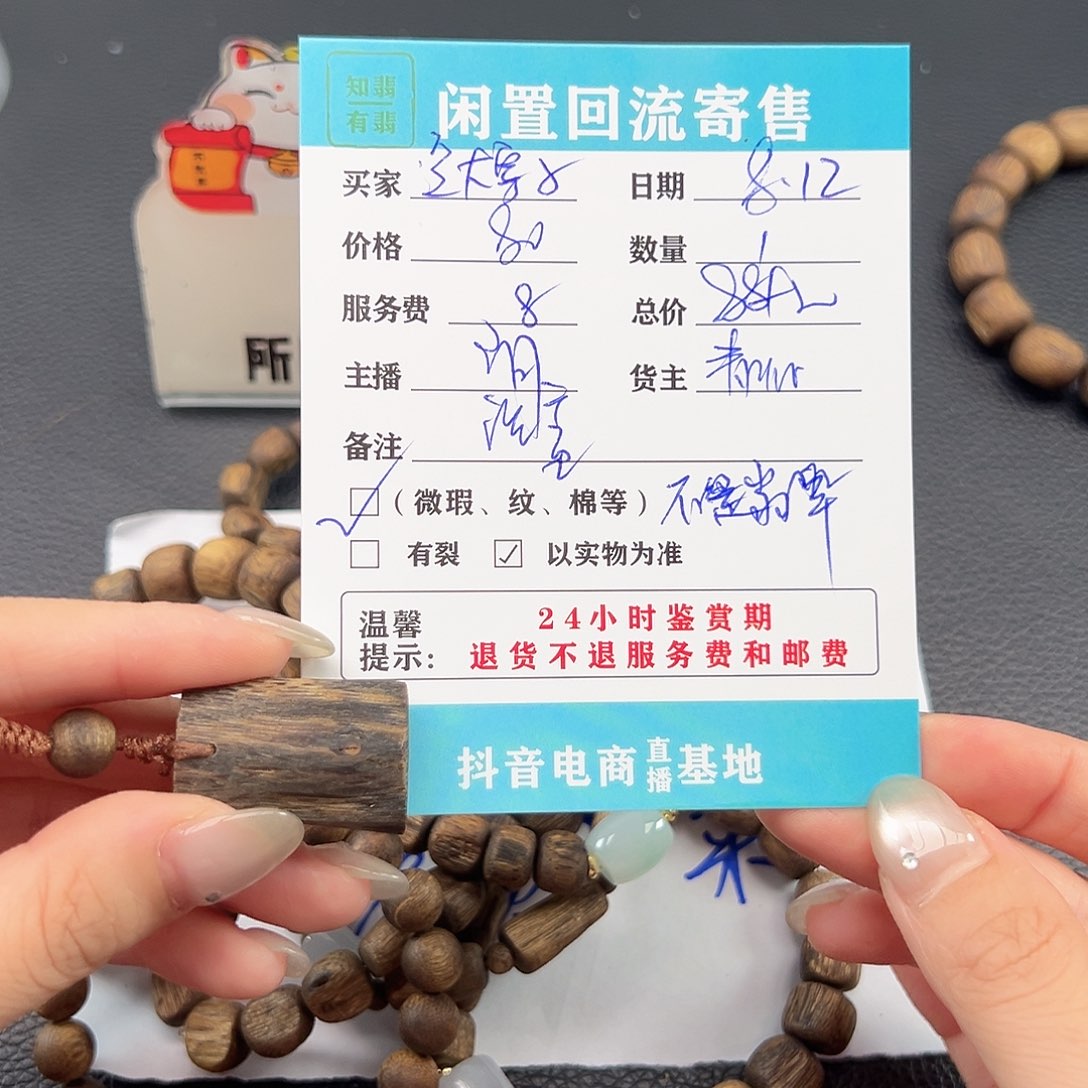 知翡
有翡
闲置回流寄售
买家 日期 8.12
价格 80 数量 1
服务费 8 总价 88
主播 货主
备注
(微瑕、纹、棉等) 不是翡翠
有裂 ☑ 以实物为准
温馨提示: 24小时鉴赏期
退货不退服务费和邮费
抖音电商直播基地
所